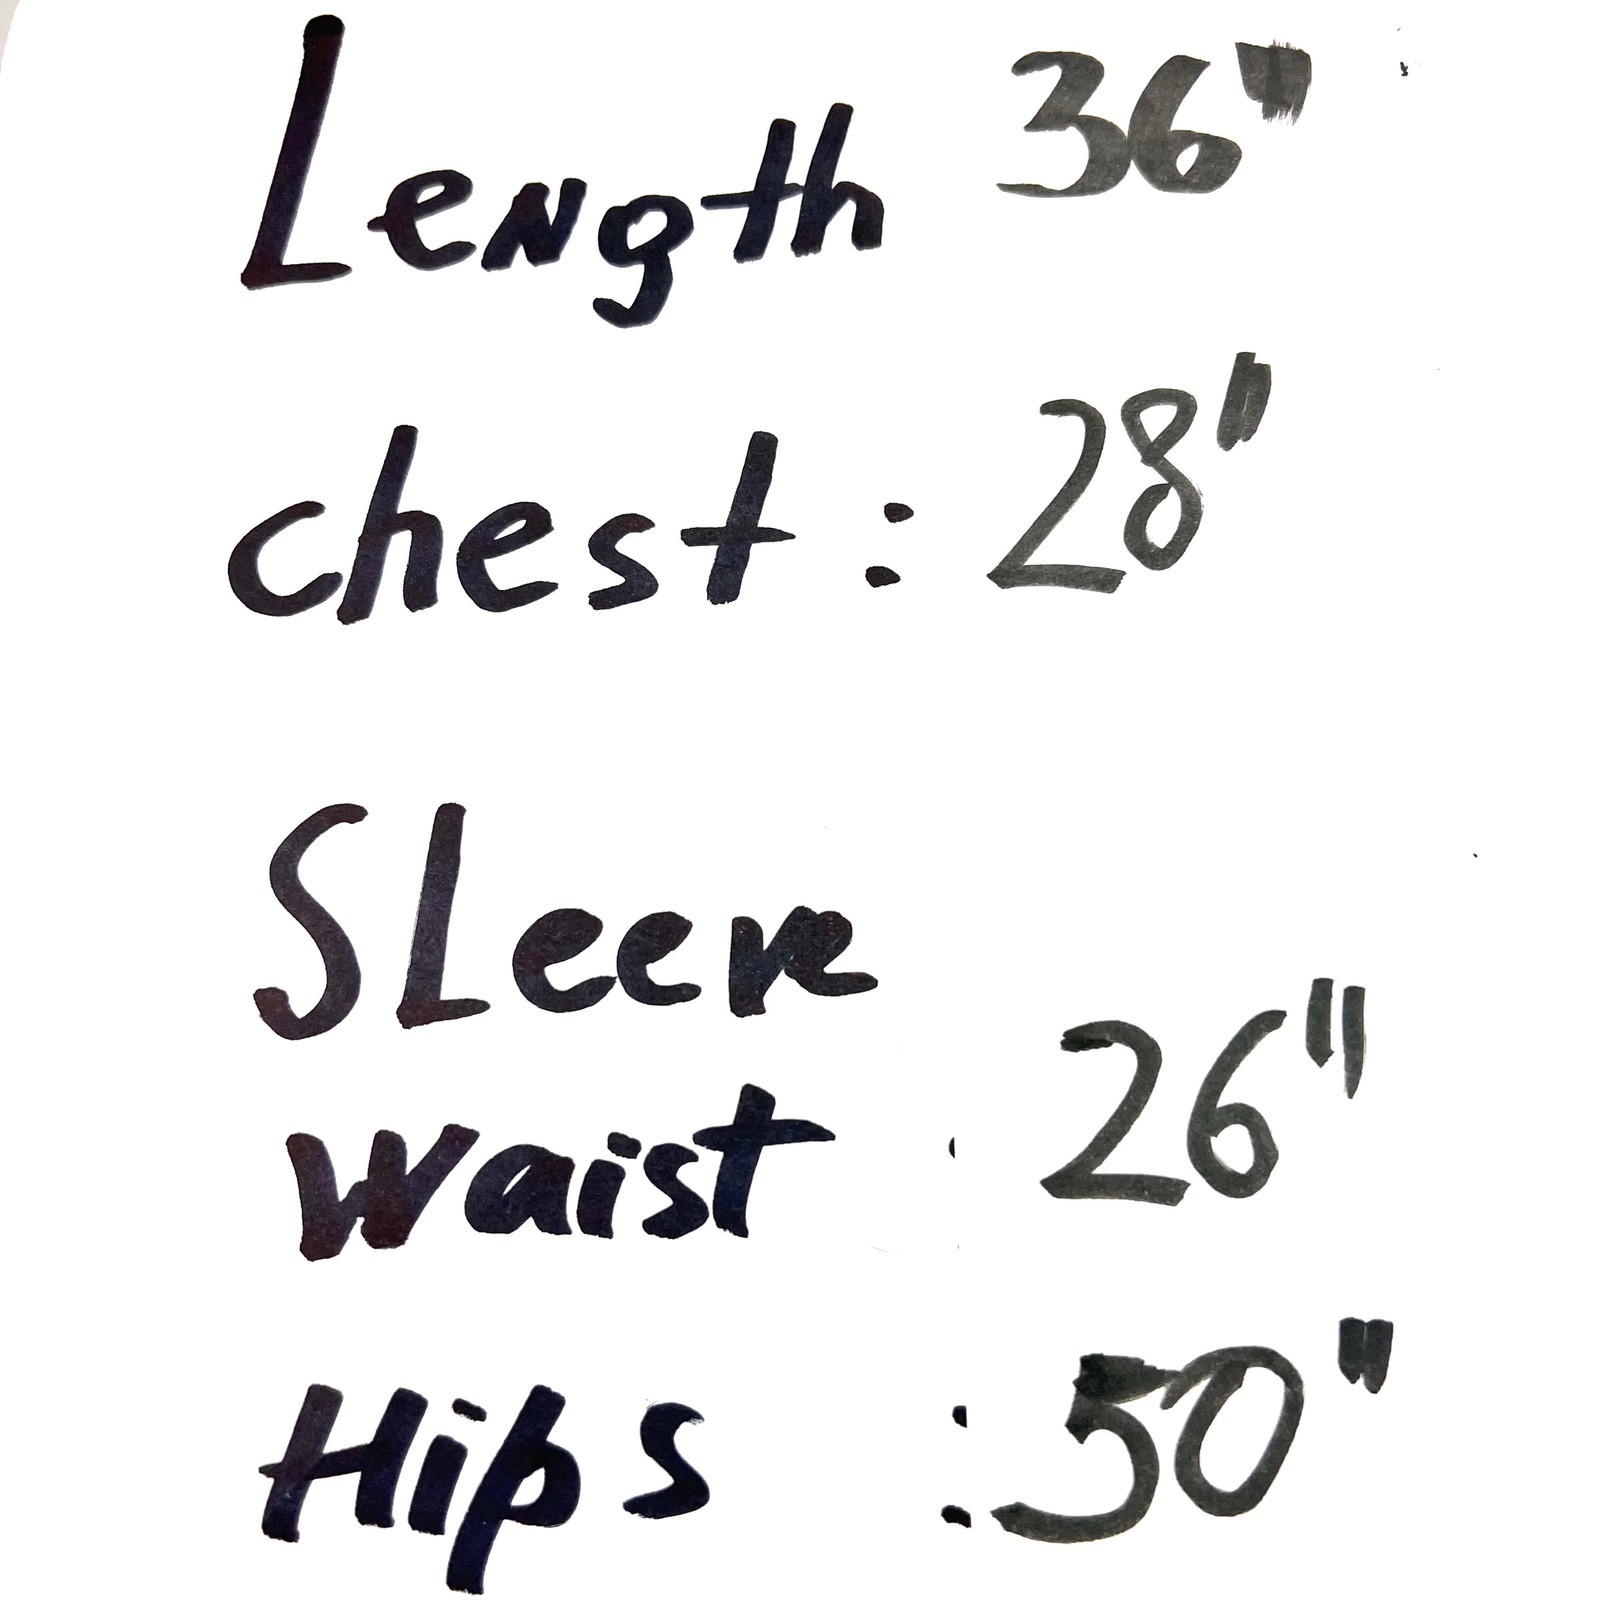 Length 36"
chest : 28"
SLeeve
waist : 26"
Hips : 50"